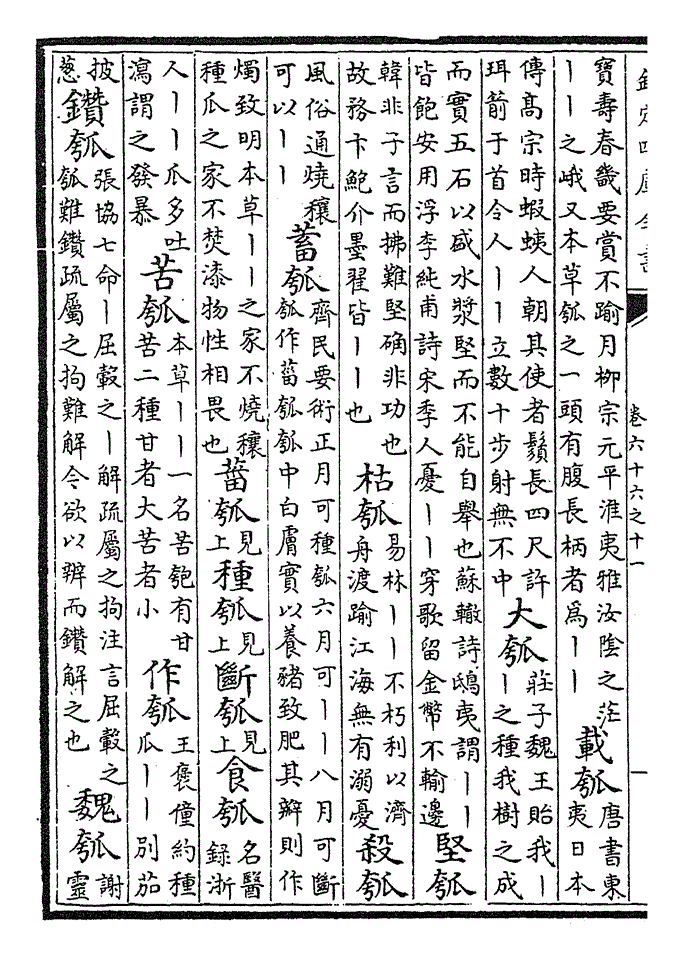 欽定四庫全書
卷六十六之十一
寶壽春畿要賞不踰月柳宗元平淮夷雅汝陰之茫
丨丨之峨又本草瓠之一頭有腹長柄者為丨丨
載瓠
唐書東
夷日本
傳高宗時蝦蛦人朝其使者鬚長四尺許
珥箭于首令人丨丨立數十步射無不中
大瓠
莊子魏王貽我丨
丨之種我樹之成
而實五石以盛水漿堅而不能自舉也蘇轍詩鴟夷謂丨丨
皆飽安用浮李純甫詩宋季人憂丨丨穿歌留金幣不輸邊
堅瓠
韓非子言而拂難堅确非功也
故務卞鮑介墨翟皆丨丨也
枯瓠
易林丨丨不朽利以濟
舟渡踰江海無有溺憂
殺瓠
風俗通燒穰
可以丨丨
蓄瓠
齊民要術正月可種瓠六月可丨丨八月可斷
瓠作蓄瓠瓠中白膚實以養豬致肥其瓣則作
燭致明本草丨丨之家不燒穰
種瓜之家不焚漆物性相畏也
蓄瓠
見
上
種瓠
見
上
斷瓠
見
上
食瓠
名醫
錄浙
人丨丨瓜多吐
瀉謂之發暴
苦瓠
本草丨丨一名苦匏有甘
苦二種甘者大苦者小
作瓠
王褒僮約種
瓜丨丨別茄
披
葱
鑽瓠
張協七命丨屈轂之丨解疏屬之拘注言屈轂之
瓠難鑽疏屬之拘難解今欲以辨而鑽解之也
魏瓠
謝
靈